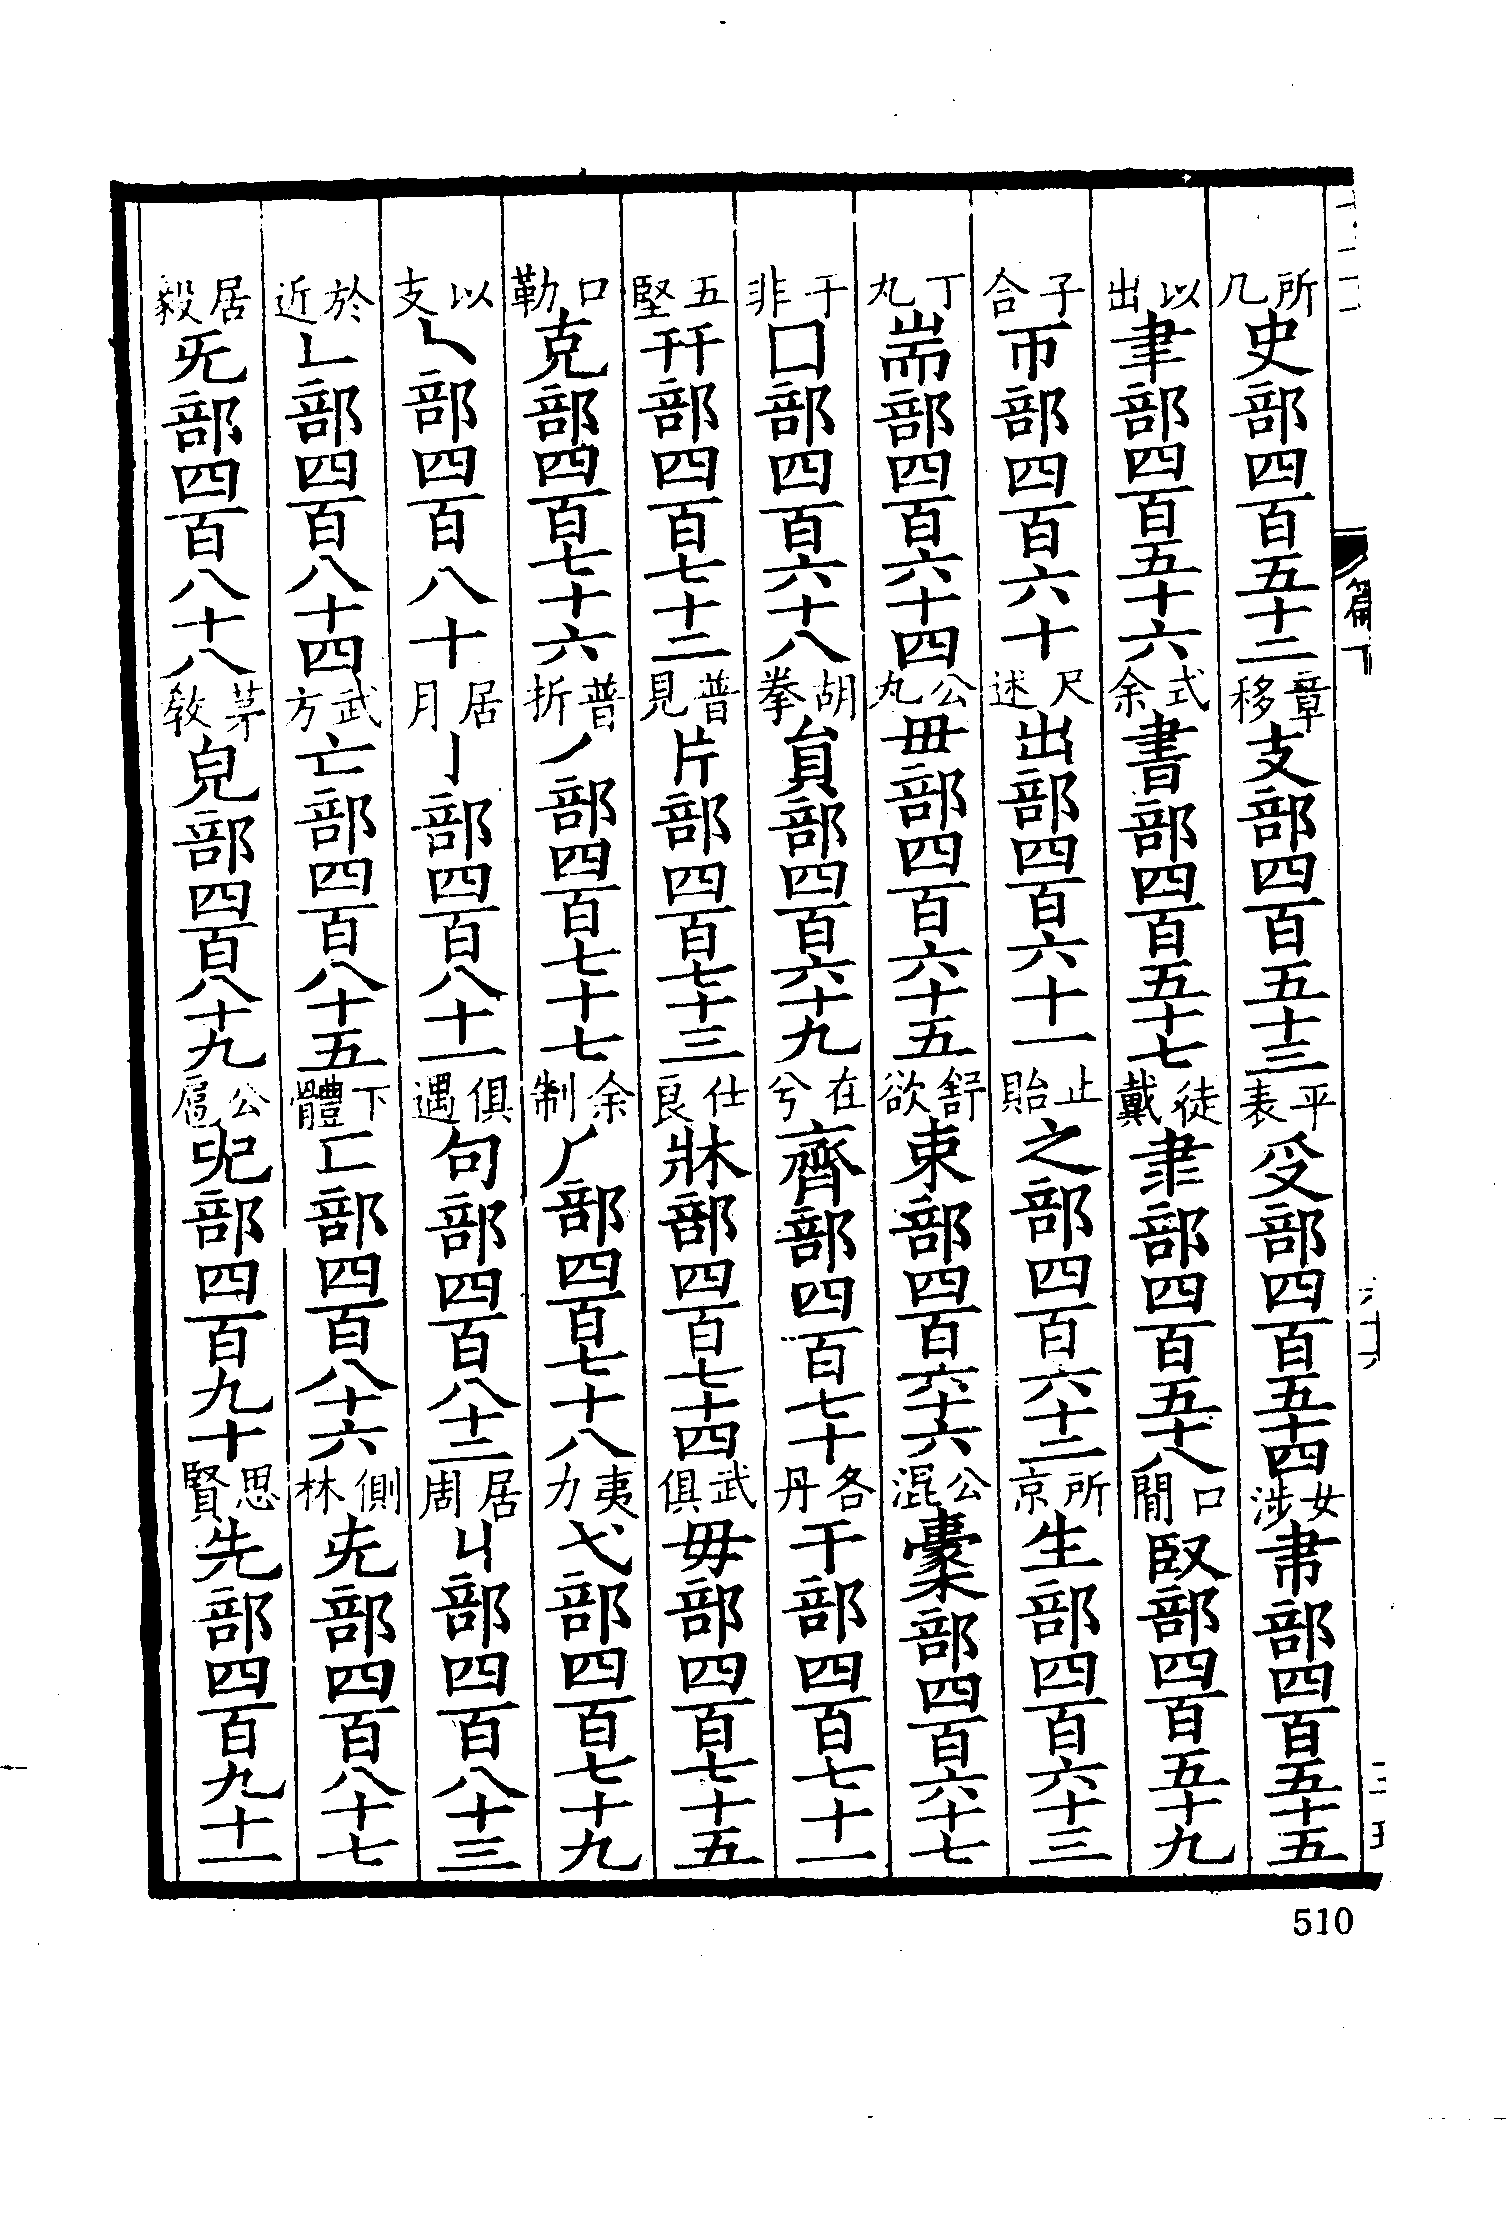 所几史部四百五十二章移支部四百五十三平表𠬪部四百五十四女涉𦘒部四百五十五
以出聿部四百五十六式余書部四百五十七徒戴隶部四百五十八口閒臤部四百五十九
子合帀部四百六十尺述出部四百六十一止貽之部四百六十二所京生部四百六十三
丁丸耑部四百六十四公丸毌部四百六十五舒欲束部四百六十六公混㯻部四百六十七
于非囗部四百六十八胡拳員部四百六十九在兮齊部四百七十各丹干部四百七十一
五堅幵部四百七十二普見片部四百七十三仕良牀部四百七十四武俱毋部四百七十五
口勒克部四百七十六普折丿部四百七十七余制𠂆部四百七十八夷力弋部四百七十九
以支乁部四百八十居月亅部四百八十一俱遇句部四百八十二居周丩部四百八十三
於近𠃊部四百八十四武方亡部四百八十五下體匸部四百八十六側林兂部四百八十七
居毅旡部四百八十八茅教皃部四百八十九公扈𠑹部四百九十思賢先部四百九十一
篇下
510